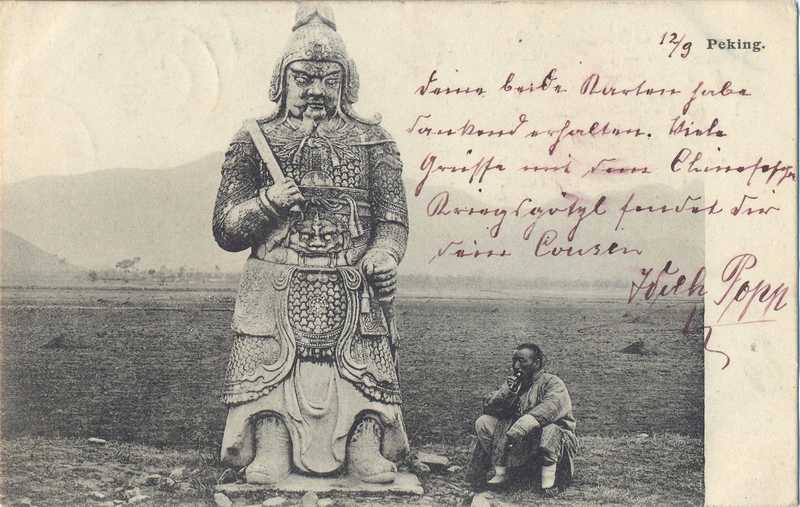 12/9 Peking.
Deine beide Karten habe
dankend erhalten. Viele
Grüsse mit dem Chinesische
Kriegsgötzl sendet dir
dein Cousen
Popp